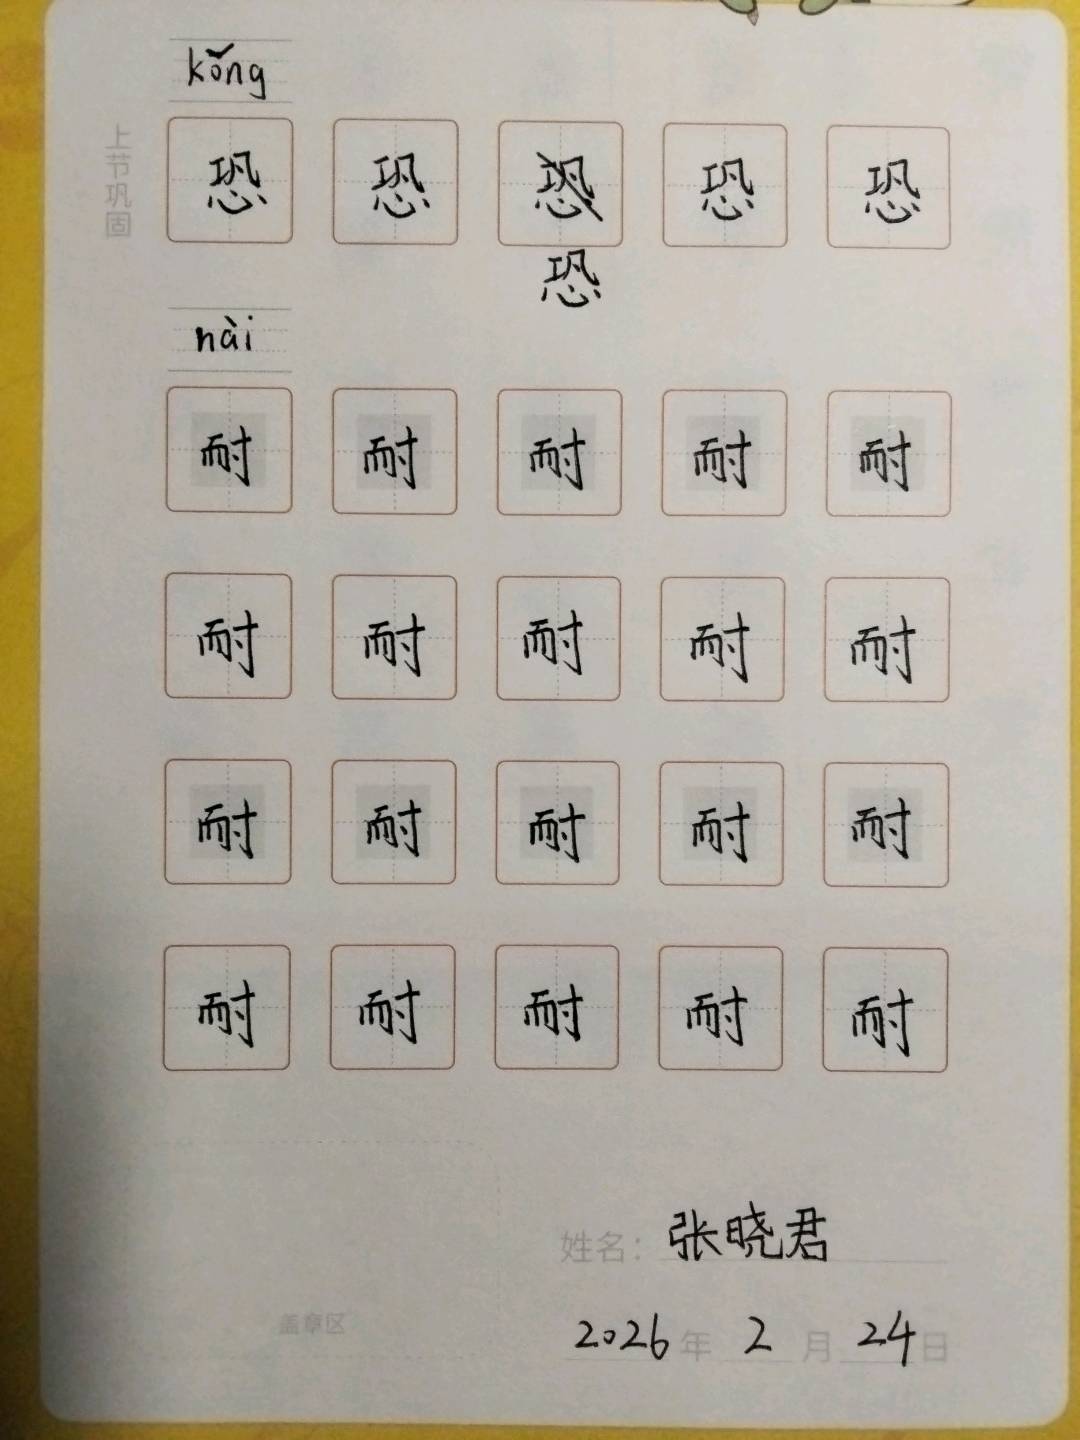 kǒng
上节巩固
恐 恐 恐 恐 恐
恐
nài
耐 耐 耐 耐 耐
耐 耐 耐 耐 耐
耐 耐 耐 耐 耐
耐 耐 耐 耐 耐
姓名：张晓君
盖章区
2026年2月24日